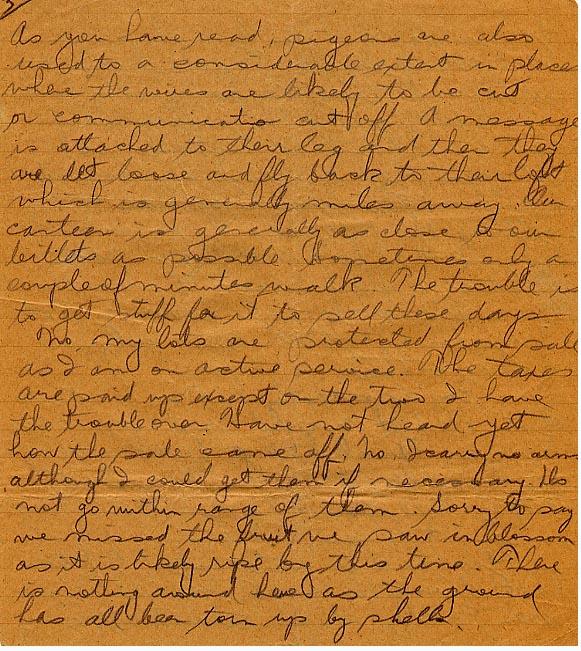 3
As you have read, pigeons are also
used to a considerable extent in places
where the wires are likely to be cut
or communicatio cut off. A message
is attached to their leg and then they
are let loose and fly back to their loft
which is generally miles away. Our
canteen is generally as close to our
billets as possible sometimes only a
couple of minutes walk. The trouble is
to get stuff for it to sell these days
No, my lots are protected from sale
as I am on active service. The taxes
are paid up except on the two I have
the trouble over. Have not heard yet
how the sale came off. No, I carry no arms
although I could get them if necessary. Do
not go within range of them. Sorry to say
we missed the fruit we saw in blossom
as it is likely ripe by this time. There
is nothing around here as the ground
has all been torn up by shells.